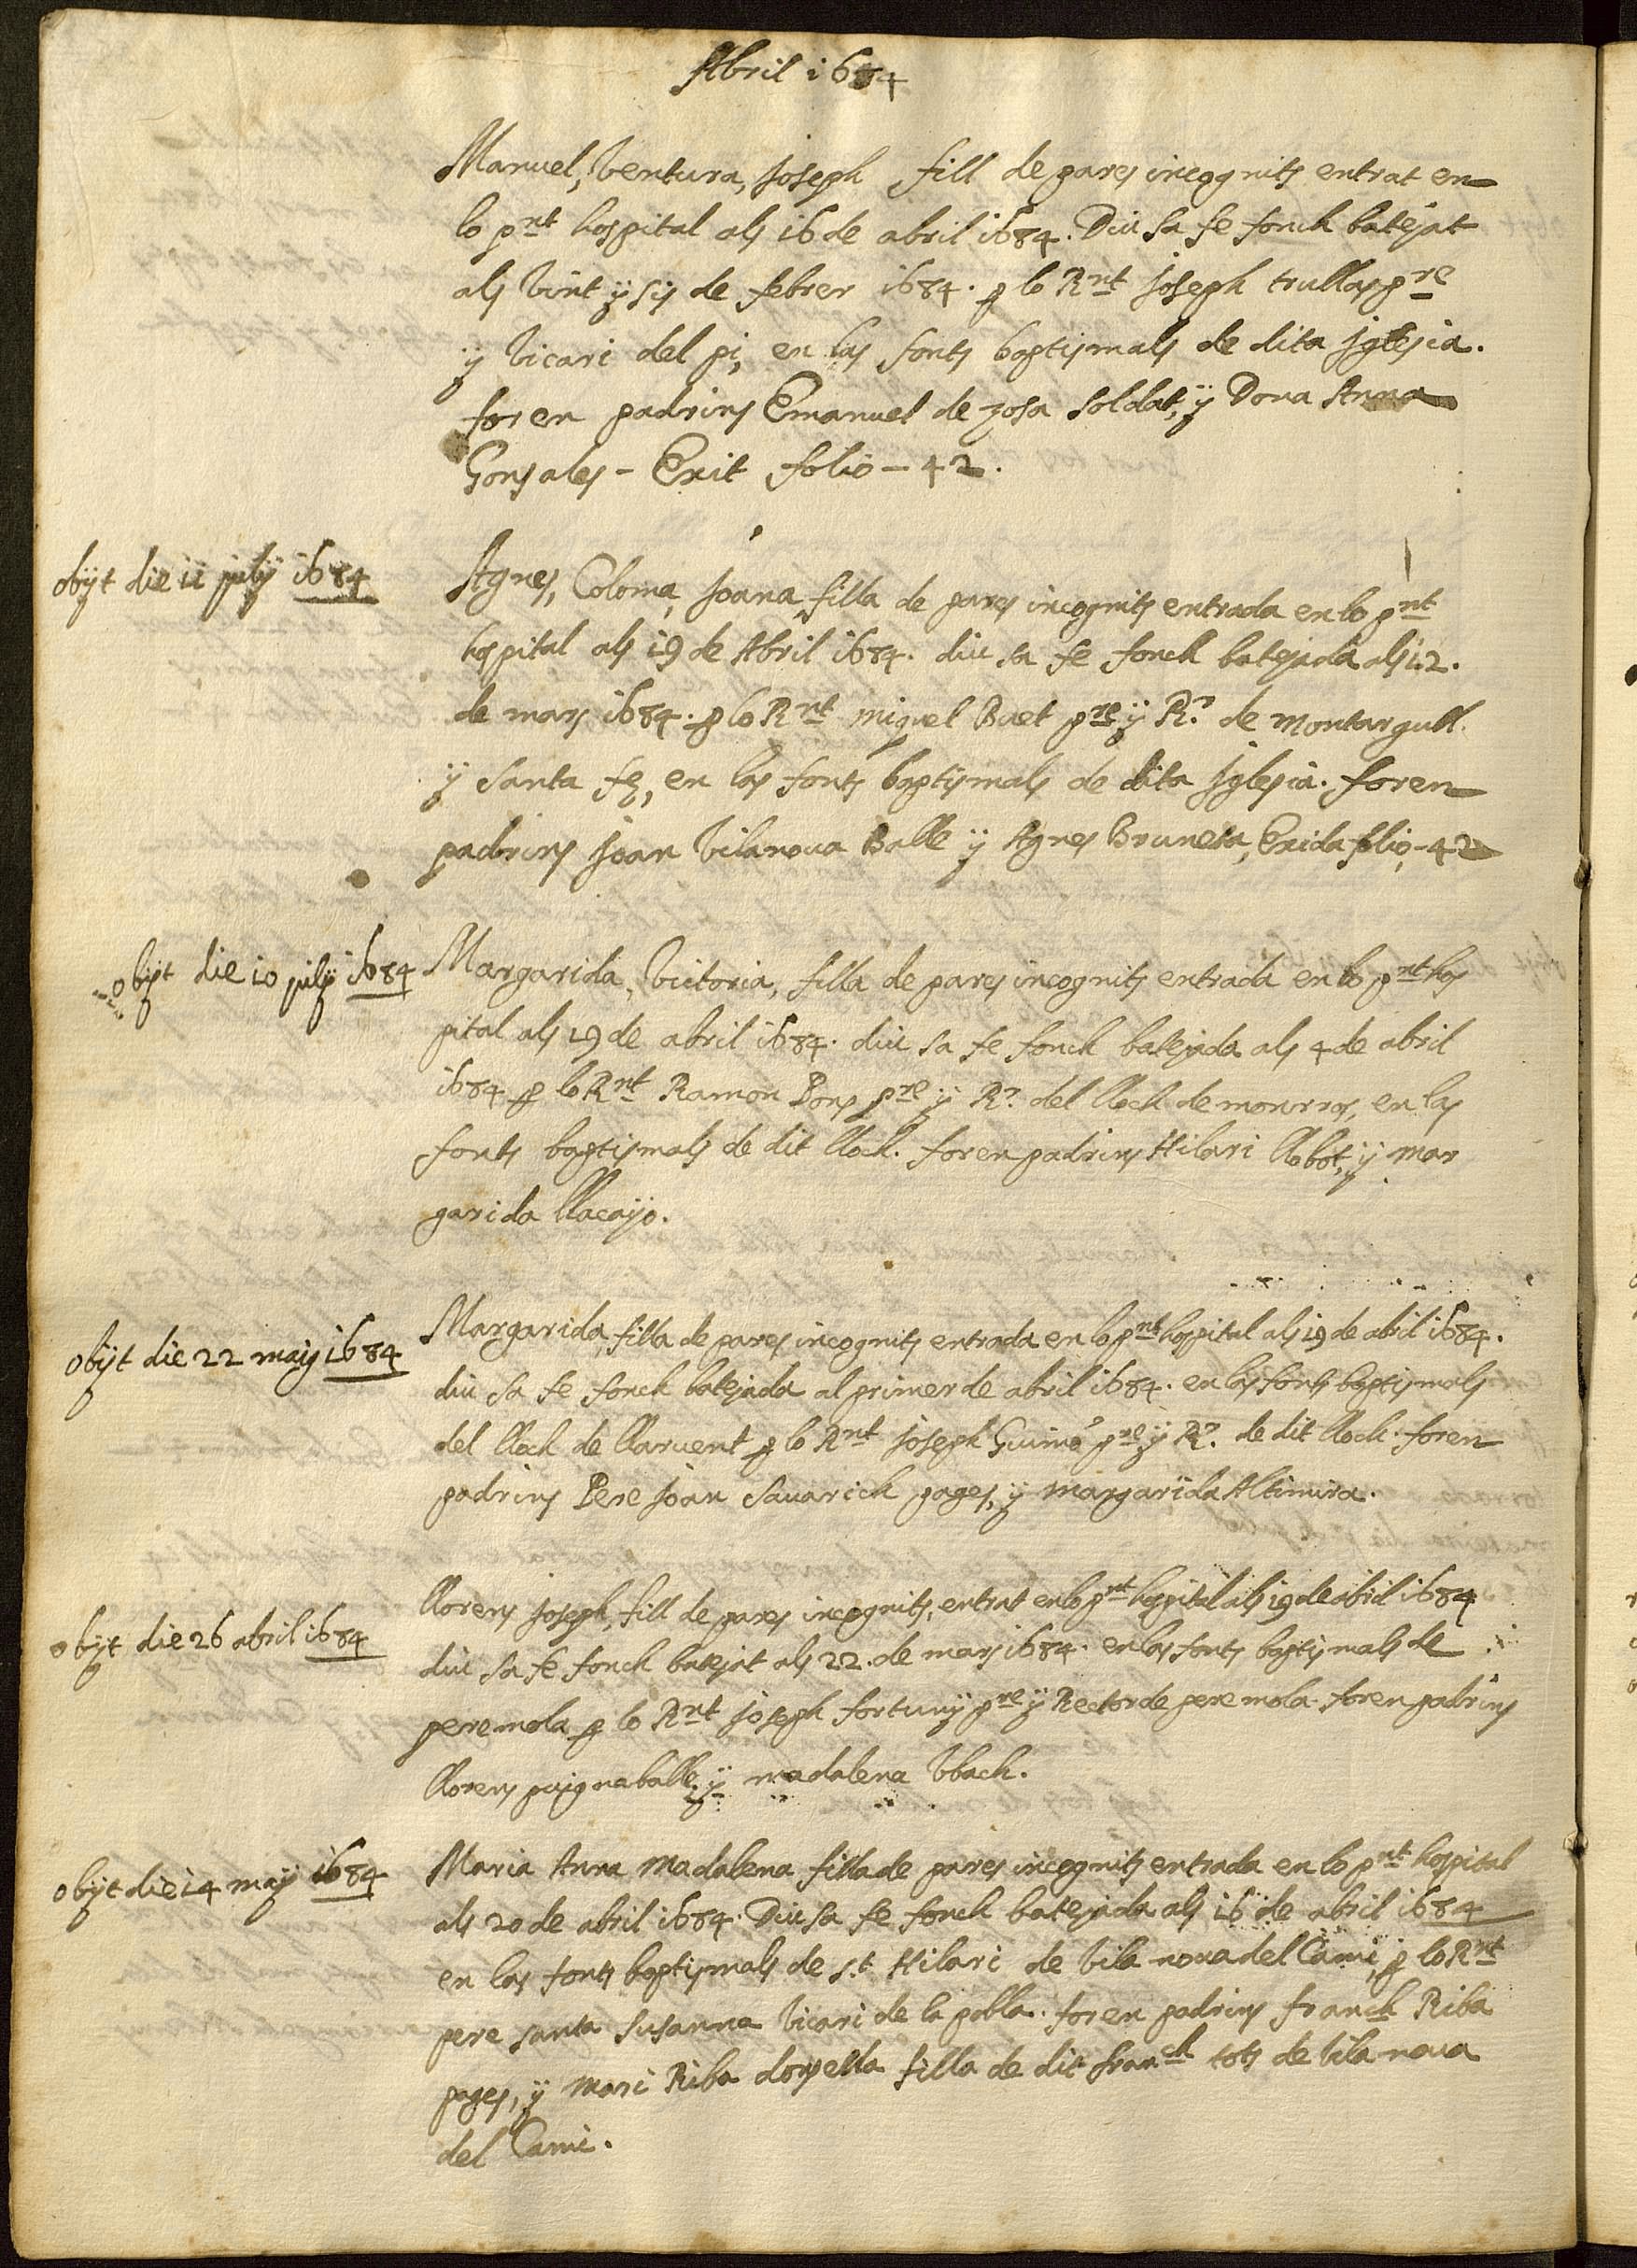 Abril 1684
Manuel, Ventura, Joseph fill de pares incognits entrat en
lo pnt hospital als 16 de abril 1684. Diu sa fe fonch batejat
als Vint y sis de febrer 1684. p lo Rnt Joseph trullas pre
y Vicari del pi, en las fonts baptismals de dita Iglesia.
foren padrins Emanuel de zosa soldat, y Dona Anna
Gonsales - Exit folio - 42.
obijt die 11 julij 1684
Agnes, Coloma, Joana filla de pares incognits entrada en lo pnt
hospital als 19 de Abril 1684. diu sa fe fonch batejada als 12.
de mars 1684. p lo Rnt Miquel Buet pre y Rr. de Montargull
y Santa fe, en las fonts baptismals de dita Iglesia. foren
padrins Joan Vilanova Balle y Agnes Bruneta, Exida folio, - 42
obijt die 10 julij 1684
Margarida, Victoria, filla de pares incognits entrada en lo pnt hos
pital als 19 de abril 1684. diu sa fe fonch batejada als 4 de abril
1684 p lo Rnt Ramon Pons pre y Rr. del lloch de monrros, en las
fonts baptismals de dit lloch. foren padrins Hilari llobot, y mar
garida llacayo.
obijt die 22 maij 1684
Margarida, filla de pares incognits entrada en lo pnt hospital als 19 de abril 1684.
diu sa fe fonch batejada al primer de abril 1684. en las fonts baptismals
del lloch de llaruent p lo Rnt Joseph Guimo pre y Rr. de dit lloch. foren
padrins Pere Joan Sauarich pages, y margarida Altimira.
obijt die 26 abril 1684
llorens Joseph, fill de pares incognits, entrat en lo pnt hospital als 19 de abril 1684
diu sa fe fonch batejat als 22. de mars 1684. en las fonts baptismals de
peremola p lo Rnt Joseph fortuny pre y Rector de peremola. foren padrins
llorens puignaballe, y madalena Vbach.
obijt die 14 maij 1684
Maria Anna Madalena filla de pares incognits entrada en lo pnt hospital
als 20 de abril 1684. Diu sa fe fonch batejada als 16 de abril 1684
en las fonts baptismals de st Hilari de Vila noua del Cami, p lo Rnt
pere santa susanna Vicari de la pobla. foren padrins franch Riba
pages, y Mari Riba donsella filla de dit franch tots de Vila noua
del Cami.